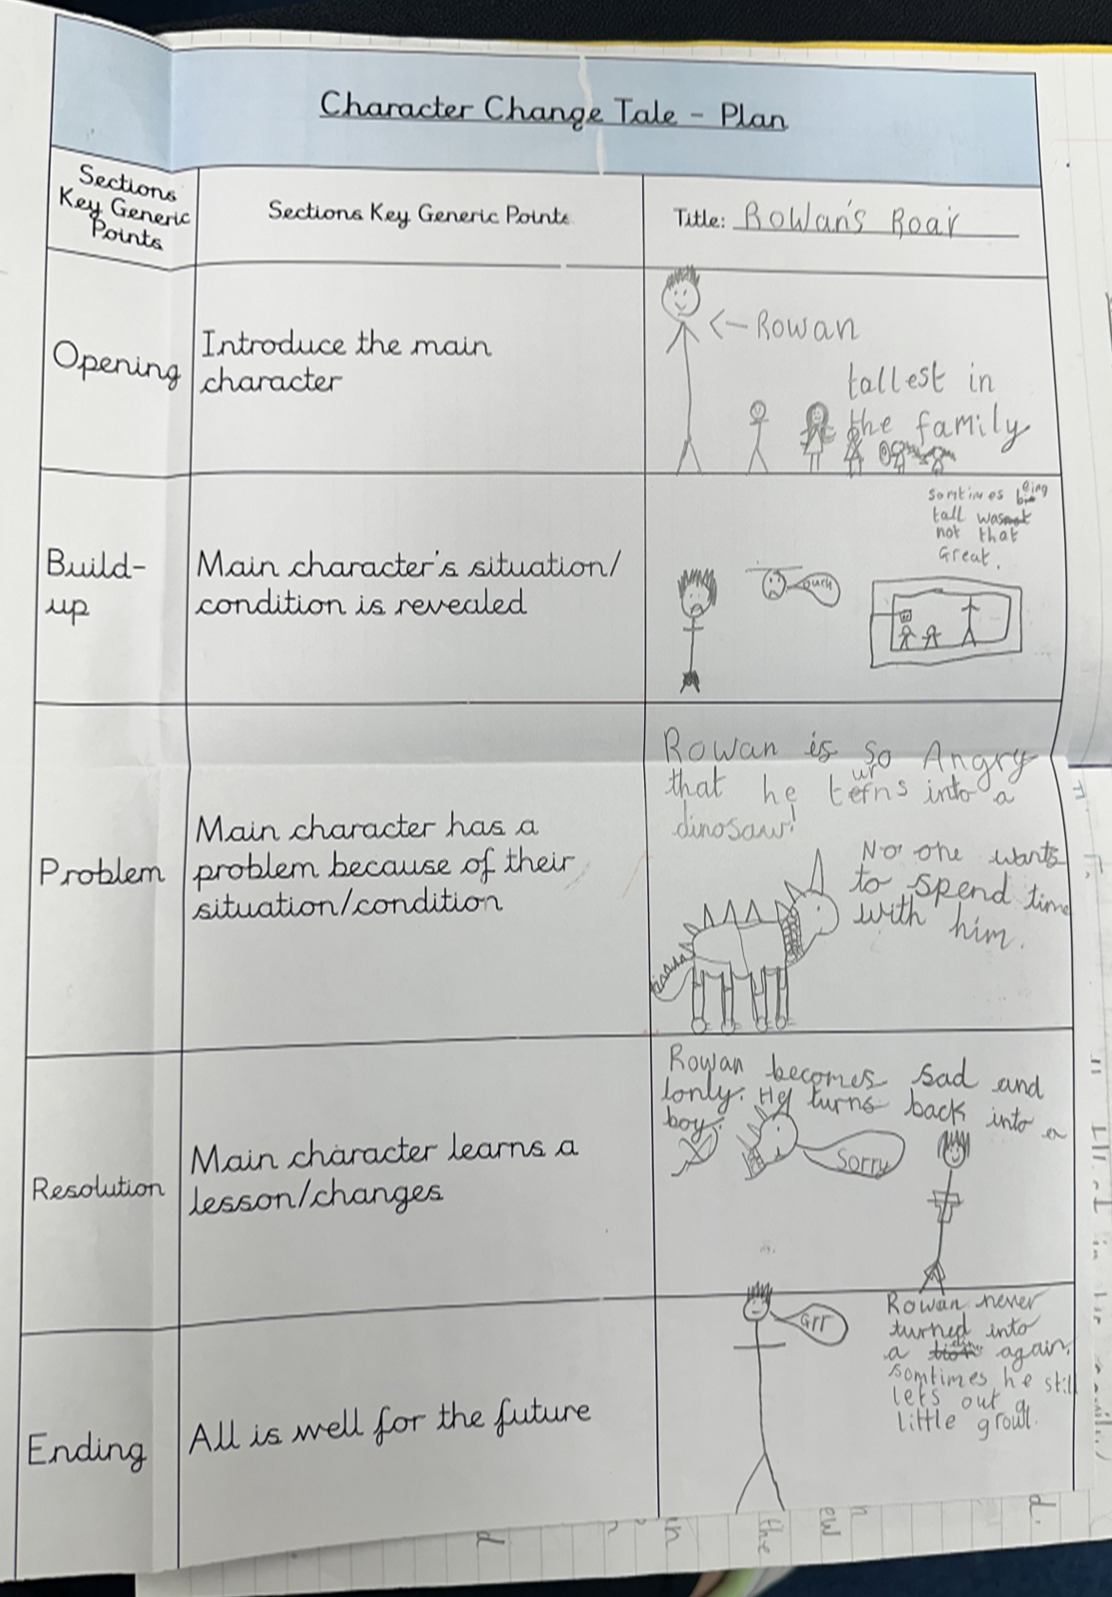 Character Change Tale - Plan
Sections
Key Generic
Points
Sections Key Generic Points
Title: Rowan's Roar
Opening
Introduce the main
character
<- Rowan
tallest in
the family
Build-
up
Main character's situation/
condition is revealed
somtimes being
tall was
not that
Great.
ouch
Problem
Main character has a
problem because of their
situation/condition
Rowan is so Angry
that he turns into a
dinosaur!
No one wants
to spend time
with him.
Resolution
Main character learns a
lesson/changes
Rowan becomes sad and
lonly. He turns back into a
boy.
Sorry
Ending
All is well for the future
Grr
Rowan never
turned into
a dino again.
somtimes he still
lets out a
little growl.
in
the
d.